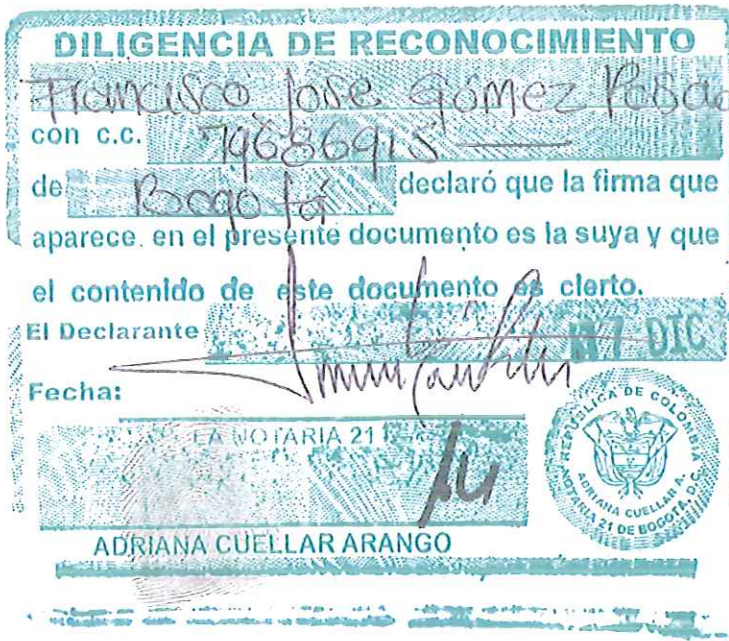 DILIGENCIA DE RECONOCIMIENTO
Francisco José Gómez
con c.c. 79686915
de Bogotá declaró que la firma que
aparece en el presente documento es la suya y que
el contenido de este documento es cierto.
El Declarante
17 DIC
Fecha:
LA NOTARIA 21
ADRIANA CUELLAR ARANGO
REPUBLICA DE COLOMBIA
ADRIANA CUELLAR A.
NOTARIA 21 DE BOGOTA, D.C.